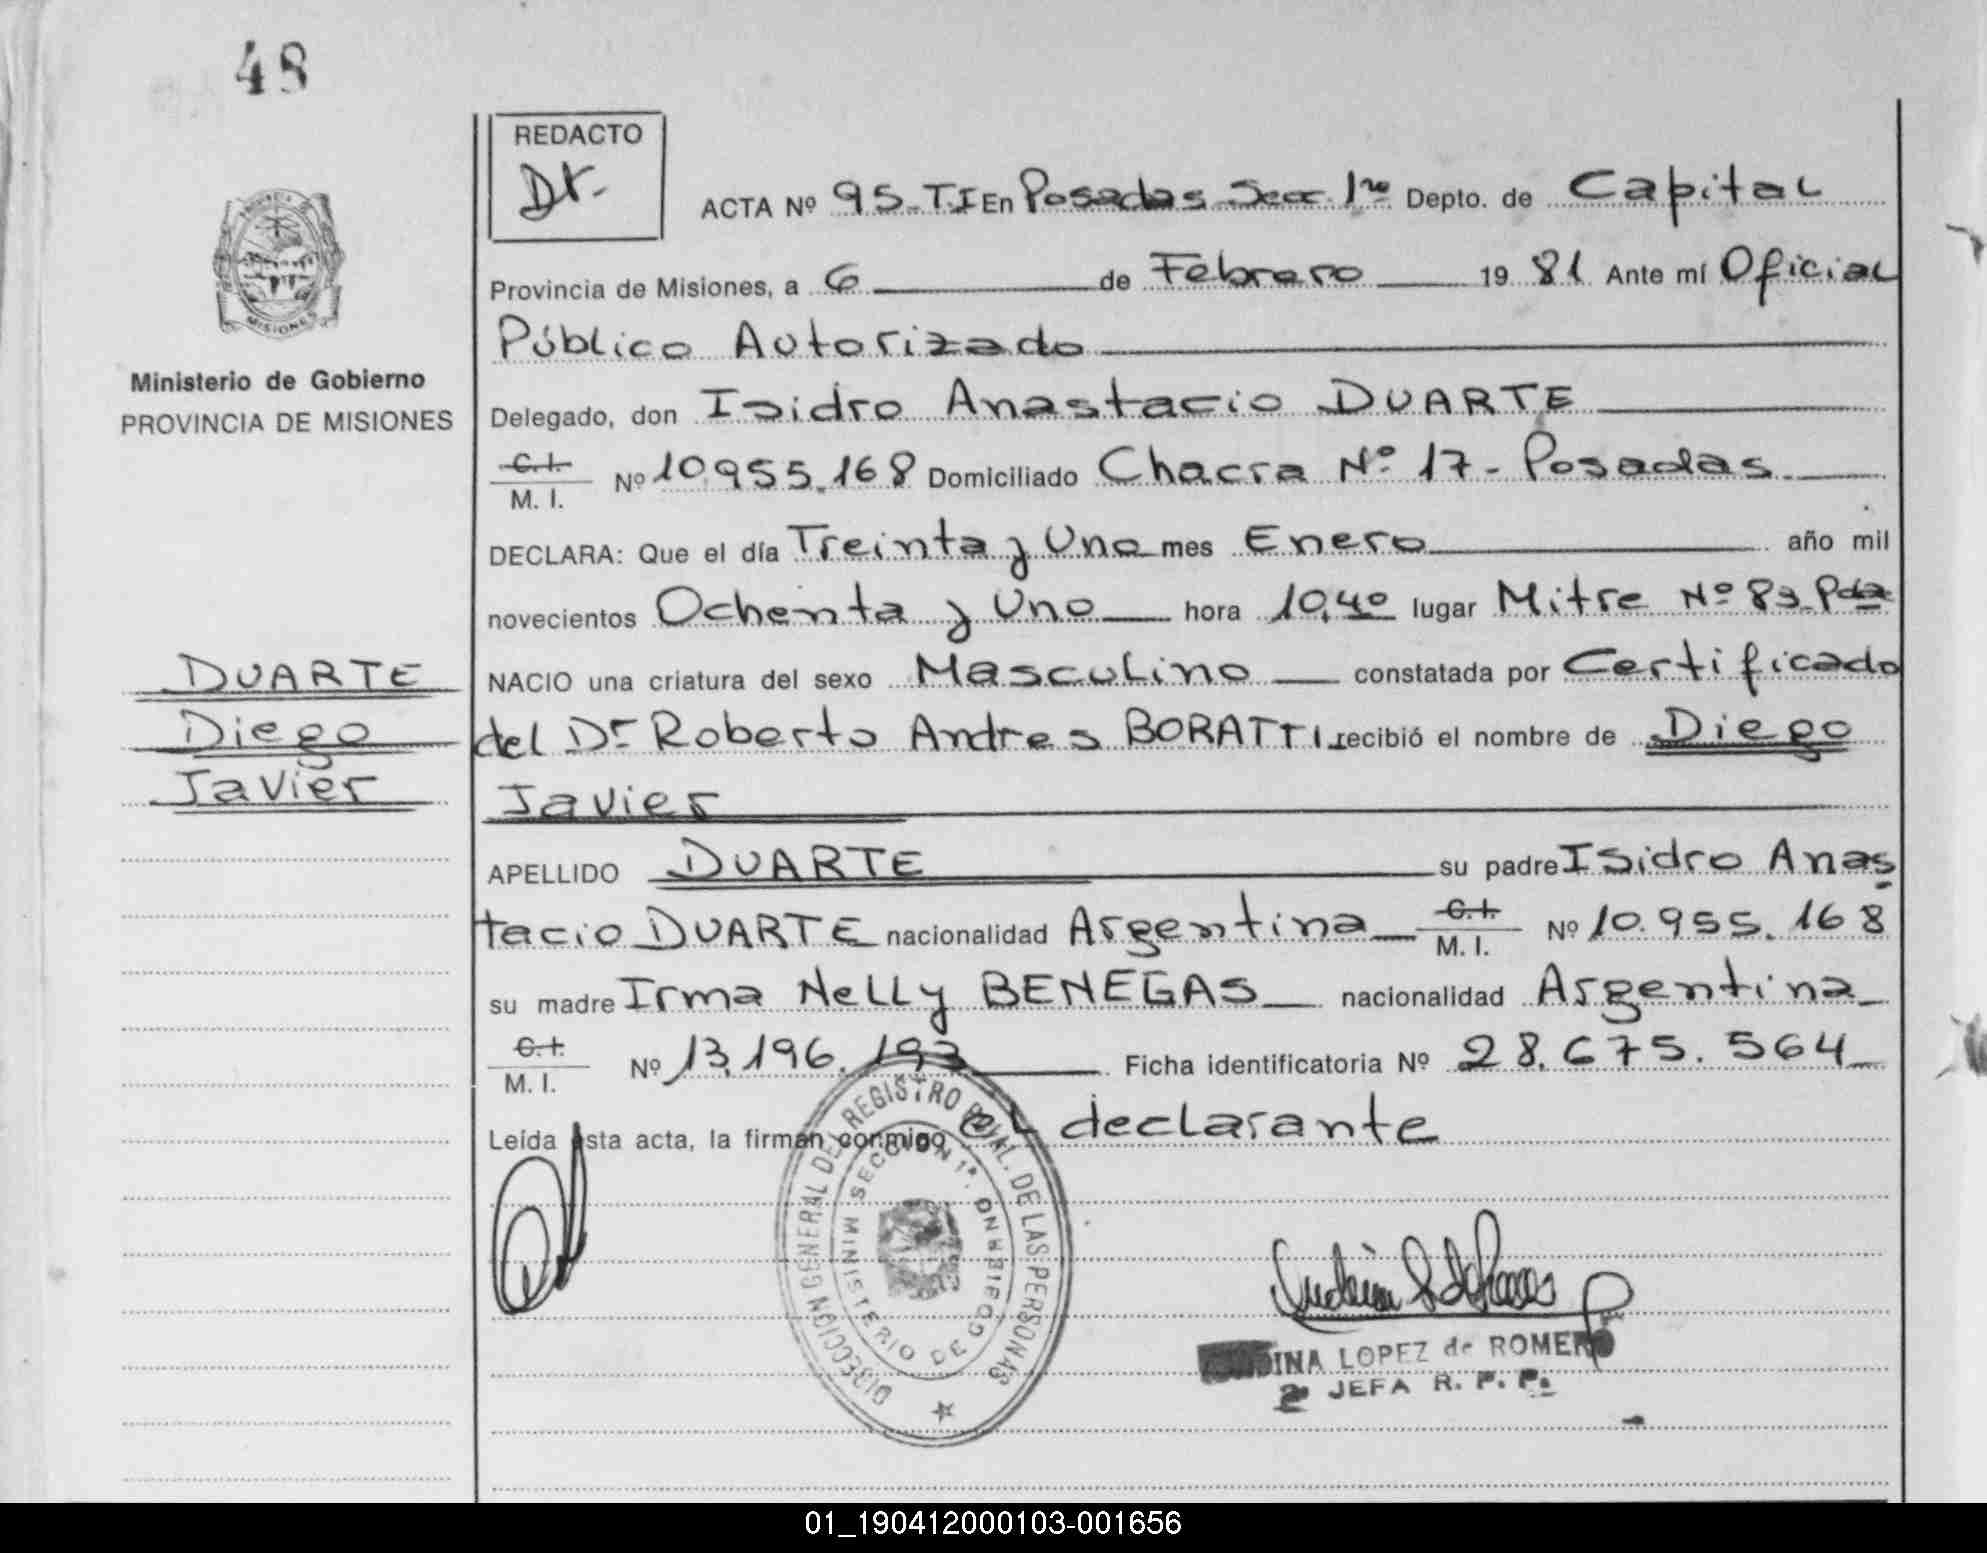 48
REDACTO
Dr.
MISIONES
Ministerio de Gobierno
PROVINCIA DE MISIONES
ACTA Nº 95 T.I En Posadas Secc. 1ra Depto. de Capital
Provincia de Misiones, a 6 de Febrero 19 81 Ante mí Oficial
Público Autorizado
Delegado, don Isidro Anastacio DUARTE
C.I.
M. I. Nº 10.955.168 Domiciliado Chacra Nº 17 - Posadas
DECLARA: Que el día Treinta y Uno mes Enero año mil
novecientos Ochenta y Uno hora 10,40 lugar Mitre Nº 83 Pdas
NACIO una criatura del sexo Masculino constatada por Certificado
del Dr Roberto Andres BORATTI recibió el nombre de Diego
Javier
DUARTE
Diego
Javier
APELLIDO DUARTE su padre Isidro Anas
tacio DUARTE nacionalidad Argentina C.I. M. I. Nº 10.955.168
su madre Irma Nelly BENEGAS nacionalidad Argentina
C.I.
M. I. Nº 13.196.193 Ficha identificatoria Nº 28.675.564
Leída esta acta, la firman conmigo el declarante
DIRECCION GENERAL DEL REGISTRO PCIAL. DE LAS PERSONAS
MINISTERIO DE GOBIERNO
SECCION 1ª.
DINA LOPEZ de ROMERO
2ª JEFA R. P. P.
01_190412000103-001656